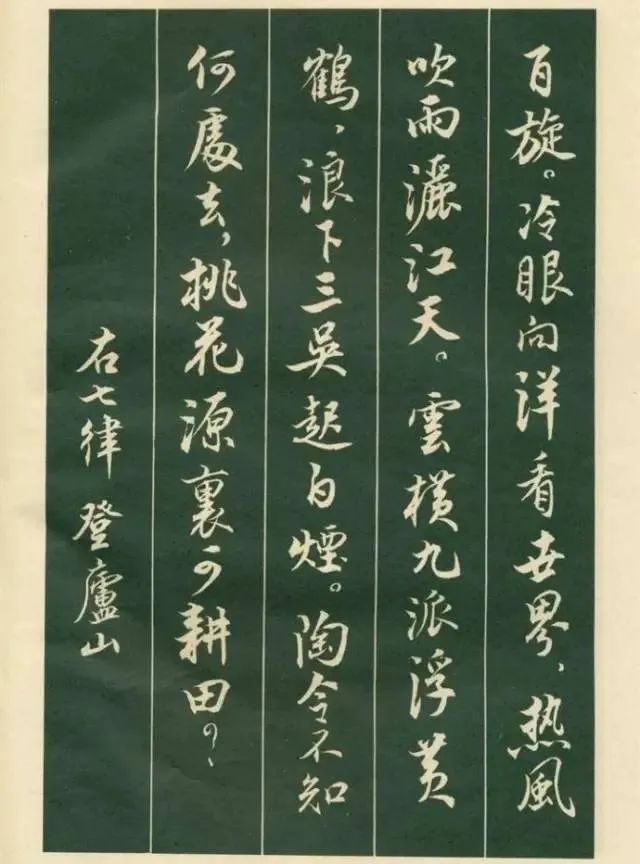 百旋。冷眼向洋看世界，热風
吹雨灑江天。雲横九派浮黄
鶴，浪下三吳起白煙。陶令不知
何處去，桃花源裏可耕田？
右七律 登廬山